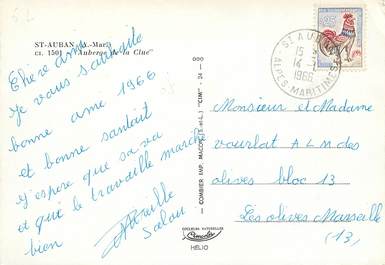 ST-AUBAN (A.-Mar.)
CI. 1501 - "Auberge de la Clue"
Chère ami
Je vous sauhaite
bonne anne 1966
et bonne santait
J'espere que sa va
et que le travaille marche
bien
Salou
000
COMBIER IMP. MACON (S.-et-L.) "CIM" - 24
COULEURS NATURELLES
Cimcolor
HELIO
ST AUBAN
15
14 -1
1966
ALPES-MARITIMES
0,25
Monsieur et Madame
vourlat A L M des
olives bloc 13
Les olives Marseille
(13)